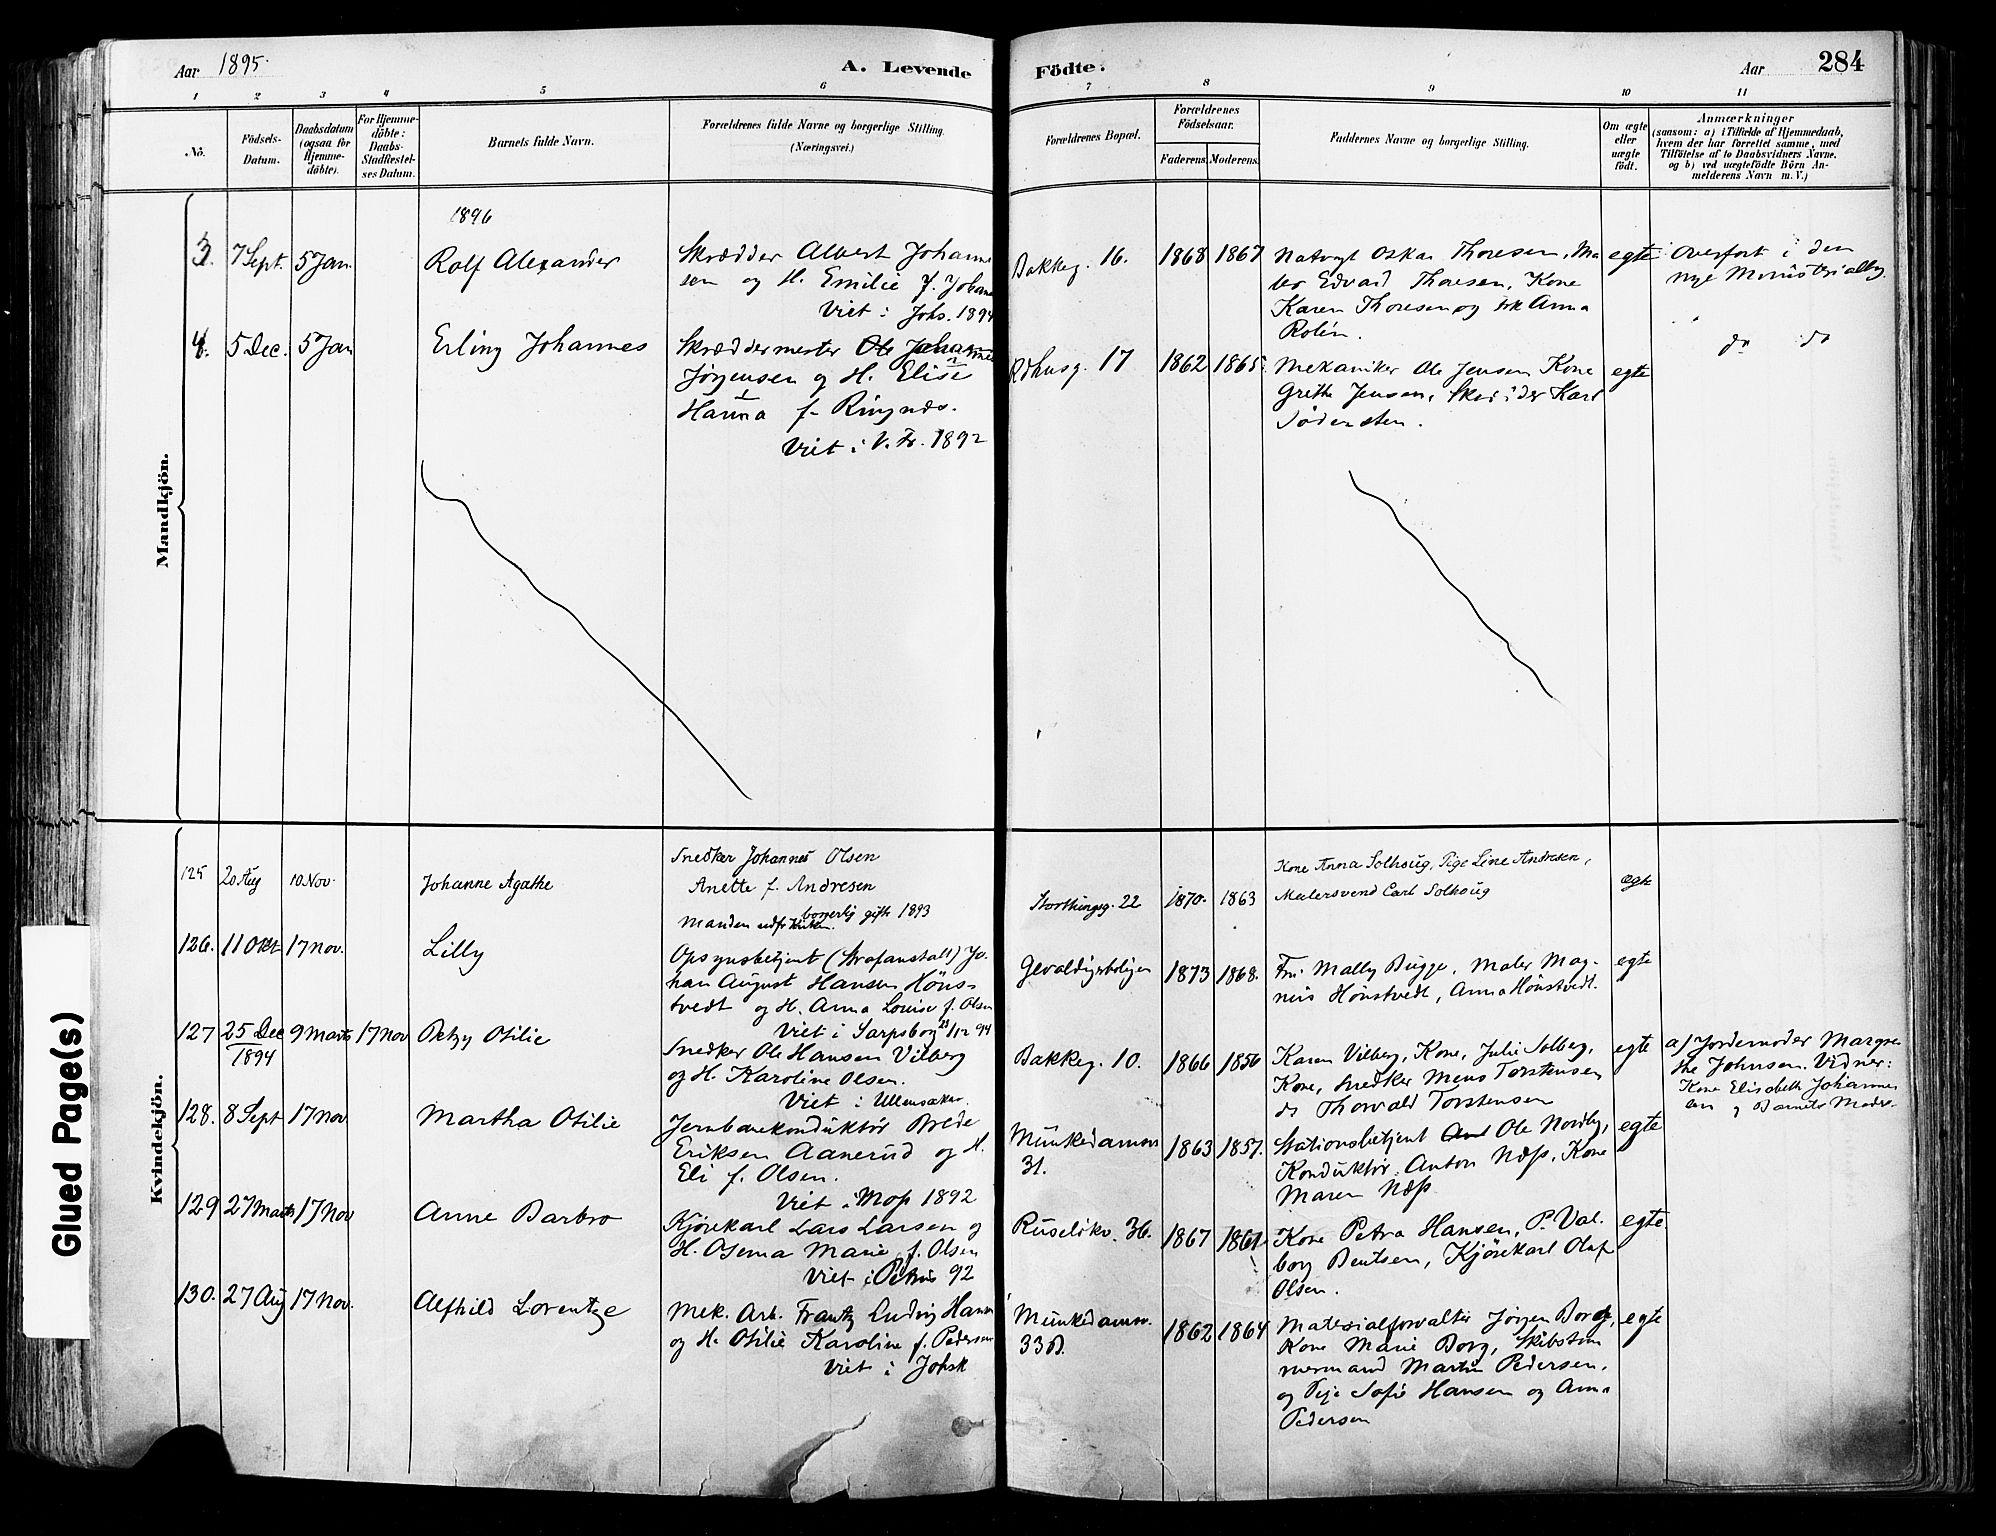 Aar 1895.
A. Levende
Födte.
Aar
284
1 2 3 4 5 6 7 8 9 10 11
No.
Födsels-
Datum.
Daabsdatum
(ogsaa for
Hjemme-
döbte).
For Hjemme-
döbte:
Daabs-
Stadfæstel-
ses Datum.
Barnets fulde Navn.
Forældrenes fulde Navne og borgerlige Stilling.
(Næringsvei.)
Forældrenes Bopæl.
Forældrenes
Födselsaar.
Faderens.
Moderens.
Faddernes Navne og borgerlige Stilling.
Om ægte
eller
uægte
födt.
Anmærkninger
(saasom: a) i Tilfælde af Hjemmedaab,
hvem der har forrettet samme, med
Tilföielse af to Daabsvidners Navne.
og b) ved uægtefödte Börn An-
melderens Navn m. V.)
Mandkjön.
1896
3. 7 Sept. 5 Jan. Rolf Alexander
Skrædder Albert Johanne
sen og H. Emilie f. Johan
Viet i Johs. 1894
Bakkeg. 16. 1868 1867
Natvgt Oskar Thoresen, Ma
ler Edvard Thoresen, Kone
Karen Thoresen og frk Anna
Rolén.
egte
Overfört i den
nye Ministerialbog
4. 5 Dec. 5 Jan Erling Johannes
Skræddermester Ole Johannes
Jørgensen og H. Elise
Hanna f. Ringnæs.
Viet i V. Fr. 1892
Rdhusg. 17 1862 1865.
Mekaniker Ole Jensen Kone
Grethe Jensen, Skrædder Karl
Södersten.
egte
do do
Kvindekjön.
125 20 Aug 10 Nov. Johanne Agathe
Snedker Johannes Olsen
Anette f. Andresen
borgerlig gift 1893
Manden udf. Kirken.
Storthingsg. 22 1870. 1863
Kone Anna Solhoug, Pige Line Andresen,
Malersvend Carl Solhoug
egte
126. 11 Okt 17 Nov. Lilly
Opsynsbetjent (Strafanstalt) Jo-
han August Hansen Höns-
tvedt og H. Anna Louise f. Olsen
Viet i Sarpsborg 28/12 94
Gevaldigerboligen 1873 1868.
Fru Mally Bugge, Maler Mag-
nus Hönstvedt, Anna Hönstvedt.
egte
127 25 Dec 1894 9 Marts 17 Nov Petzy Otilie
Snedker Ole Hansen Vilberg
og H. Karoline Olsen.
Viet i Ullensaker.
Bakkeg. 10. 1866 1856
Karen Vilberg, Kone, Julie Solberg,
Kone, Snedker Mens Torstensen
do Thorvald Torstensen
egte
a) Jordemoder Margre
the Johnsen. Vidner:
Kone Elisabeth Johannes
sen og Barnets Moder.
128. 8 Sept 17 Nov. Martha Otilie
Jernbanekonduktör Brede
Eriksen Aanerud og H.
Eli f. Olsen.
Viet i Moss 1892
Munkedamsv
31. 1863 1857.
Stationsbetjent Ole Nordby,
Konduktör Anton Næss, Kone
Maren Næss
egte
129 27 Marts 17 Nov Anne Barbro
Kjörekarl Lars Larsen og
H. Osema Marie f. Olsen
Viet i Petrus 92
Ruselökv. 36. 1867 1861
Kone Petra Hansen, P. Val-
borg Bentsen, Kjörekarl Olaf
Olsen.
egte
130. 27 Aug 17 Nov. Alfhild Lorentze
Mek. Arb. Frantz Ludvig Hansen
og H. Otilie Karoline f. Pedersen
Viet i Johsk
Munkedamsv.
33B. 1862 1864
Materialforvalter Jörgen Borg,
Kone Marie Borg, Skibstöm
mermand Martin Pedersen,
og Pige Sofie Hansen og Anna
Pedersen
egte
Glued Page(s)